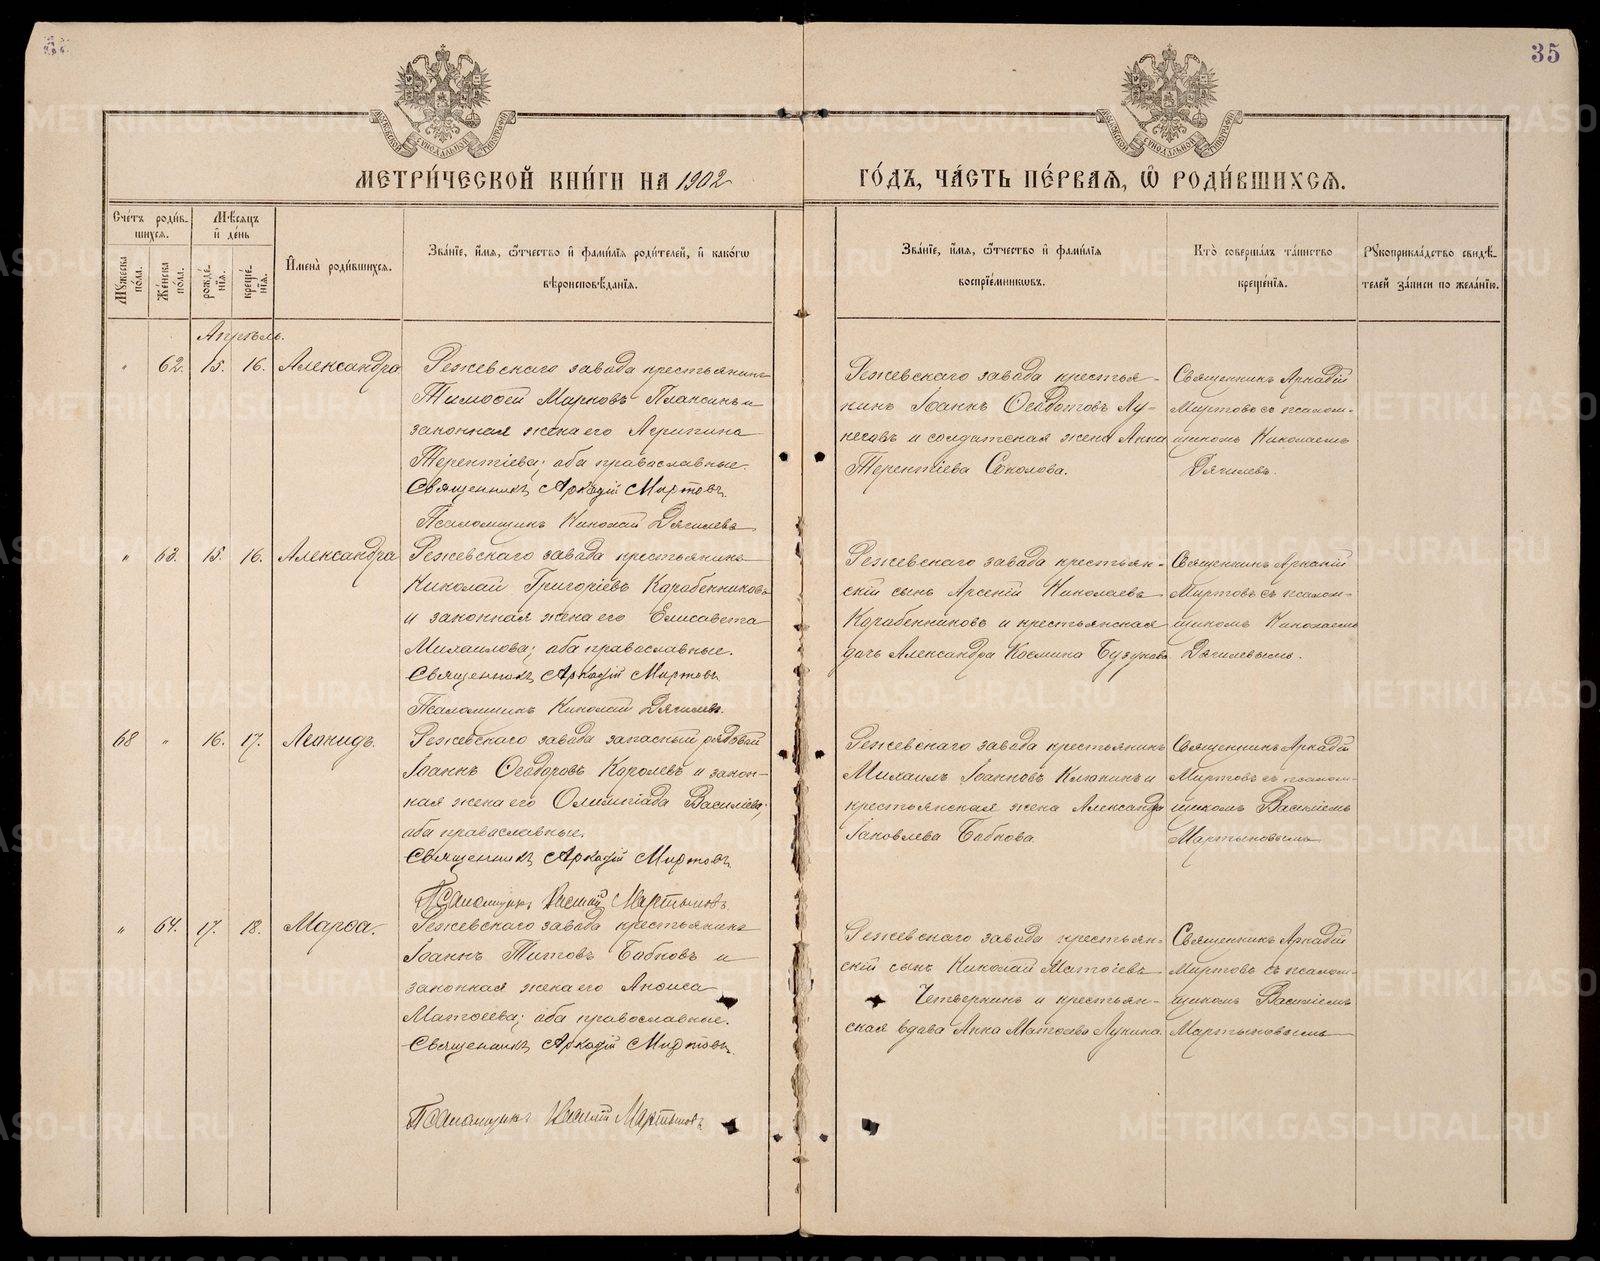 35
МЕТРИ́ЧЕСКОЙ КНИ́ГИ НА 1902
ГО́ДЪ, ЧА́СТЬ ПЕ́РВАѦ, Ѽ РОДИ́ВШИХСѦ.
Сче́тъ роди́в-
шихсѧ.
Мѣ́сѧцъ
и҆ де́нь
Мꙋ́жеска по́ла.
Же́нска по́ла.
рожде́-нїѧ.
креще́-нїѧ.
И҆мена̀ роди́вшихсѧ.
Зва́нїе, и҆́мѧ, ѻ҆́тчество и҆ фами́лїѧ роди́телей, и҆ како́гѡ
вѣроисповѣ́данїѧ.
Зва́нїе, и҆́мѧ, ѻ҆́тчество и҆ фами́лїѧ
воспрїе́мникѡвъ.
Кто̀ соверша́лъ та́инство
креще́нїѧ.
Рꙋкоприкла́дство свидѣ́-
телей за́писи по жела́нїю.
Апрѣль.
" 62. 15. 16. Александра
Режевскаго завода крестьянинъ
Тимоѳей Марковъ Плаксинъ и
законная жена его Агрипина
Терентіева; оба православные.
Священникъ Аркадій Миртовъ.
Псаломщикъ Николай Дягилевъ
Режевскаго завода крестья-
нинъ Іоаннъ Ѳеодотовъ Лу-
несовъ и солдатская жена Анна
Терентіева Соколова.
Священникъ Аркадій
Миртовъ съ псалом-
щикомъ Николаемъ
Дягилевъ.
" 63. 15. 16. Александра
Режевскаго завода крестьянинъ
Николай Григоріевъ Карабенниковъ
и законная жена его Елисавета
Михаилова; оба православные.
Священникъ Аркадій Миртовъ
Псаломщикъ Николай Дягилевъ.
Режевскаго завода крестьян-
скій сынъ Арсеній Николаевъ
Карабенниковъ и крестьянская
дочь Александра Космина Бузунова.
Священникъ Аркадій
Миртовъ съ псалом-
щикомъ Николаемъ
Дягилевымъ.
68 " 16. 17. Леонидъ.
Режевскаго завода запасный рядовой
Іоаннъ Ѳеодоровъ Королевъ и закон-
ная жена его Олимпіада Василіева;
оба православные.
Священникъ Аркадій Миртовъ.
Псаломщикъ Василій Мартыновъ.
Режевскаго завода крестьянинъ
Михаилъ Іоанновъ Клюкинъ и
крестьянская жена Александра
Іаковлева Бабкова
Священникъ Аркадій
Миртовъ съ псалом-
щикомъ Василіемъ
Мартыновымъ
" 64. 17. 18. Марѳа.
Режевскаго завода крестьянинъ
Іоаннъ Титовъ Бобковъ и
законная жена его Анѳиса
Матѳеева; оба православные.
Священникъ Аркадій Миртовъ.
Псаломщикъ Василій Мартыновъ
Режевскаго завода крестьян-
скій сынъ Николай Матѳіевъ
Четверкинъ и крестьян-
ская вдова Анна Матѳеева Лукина.
Священникъ Аркадій
Миртовъ съ псалом-
щикомъ Василіемъ
Мартыновымъ
METRIKI.GASO-URAL.RU